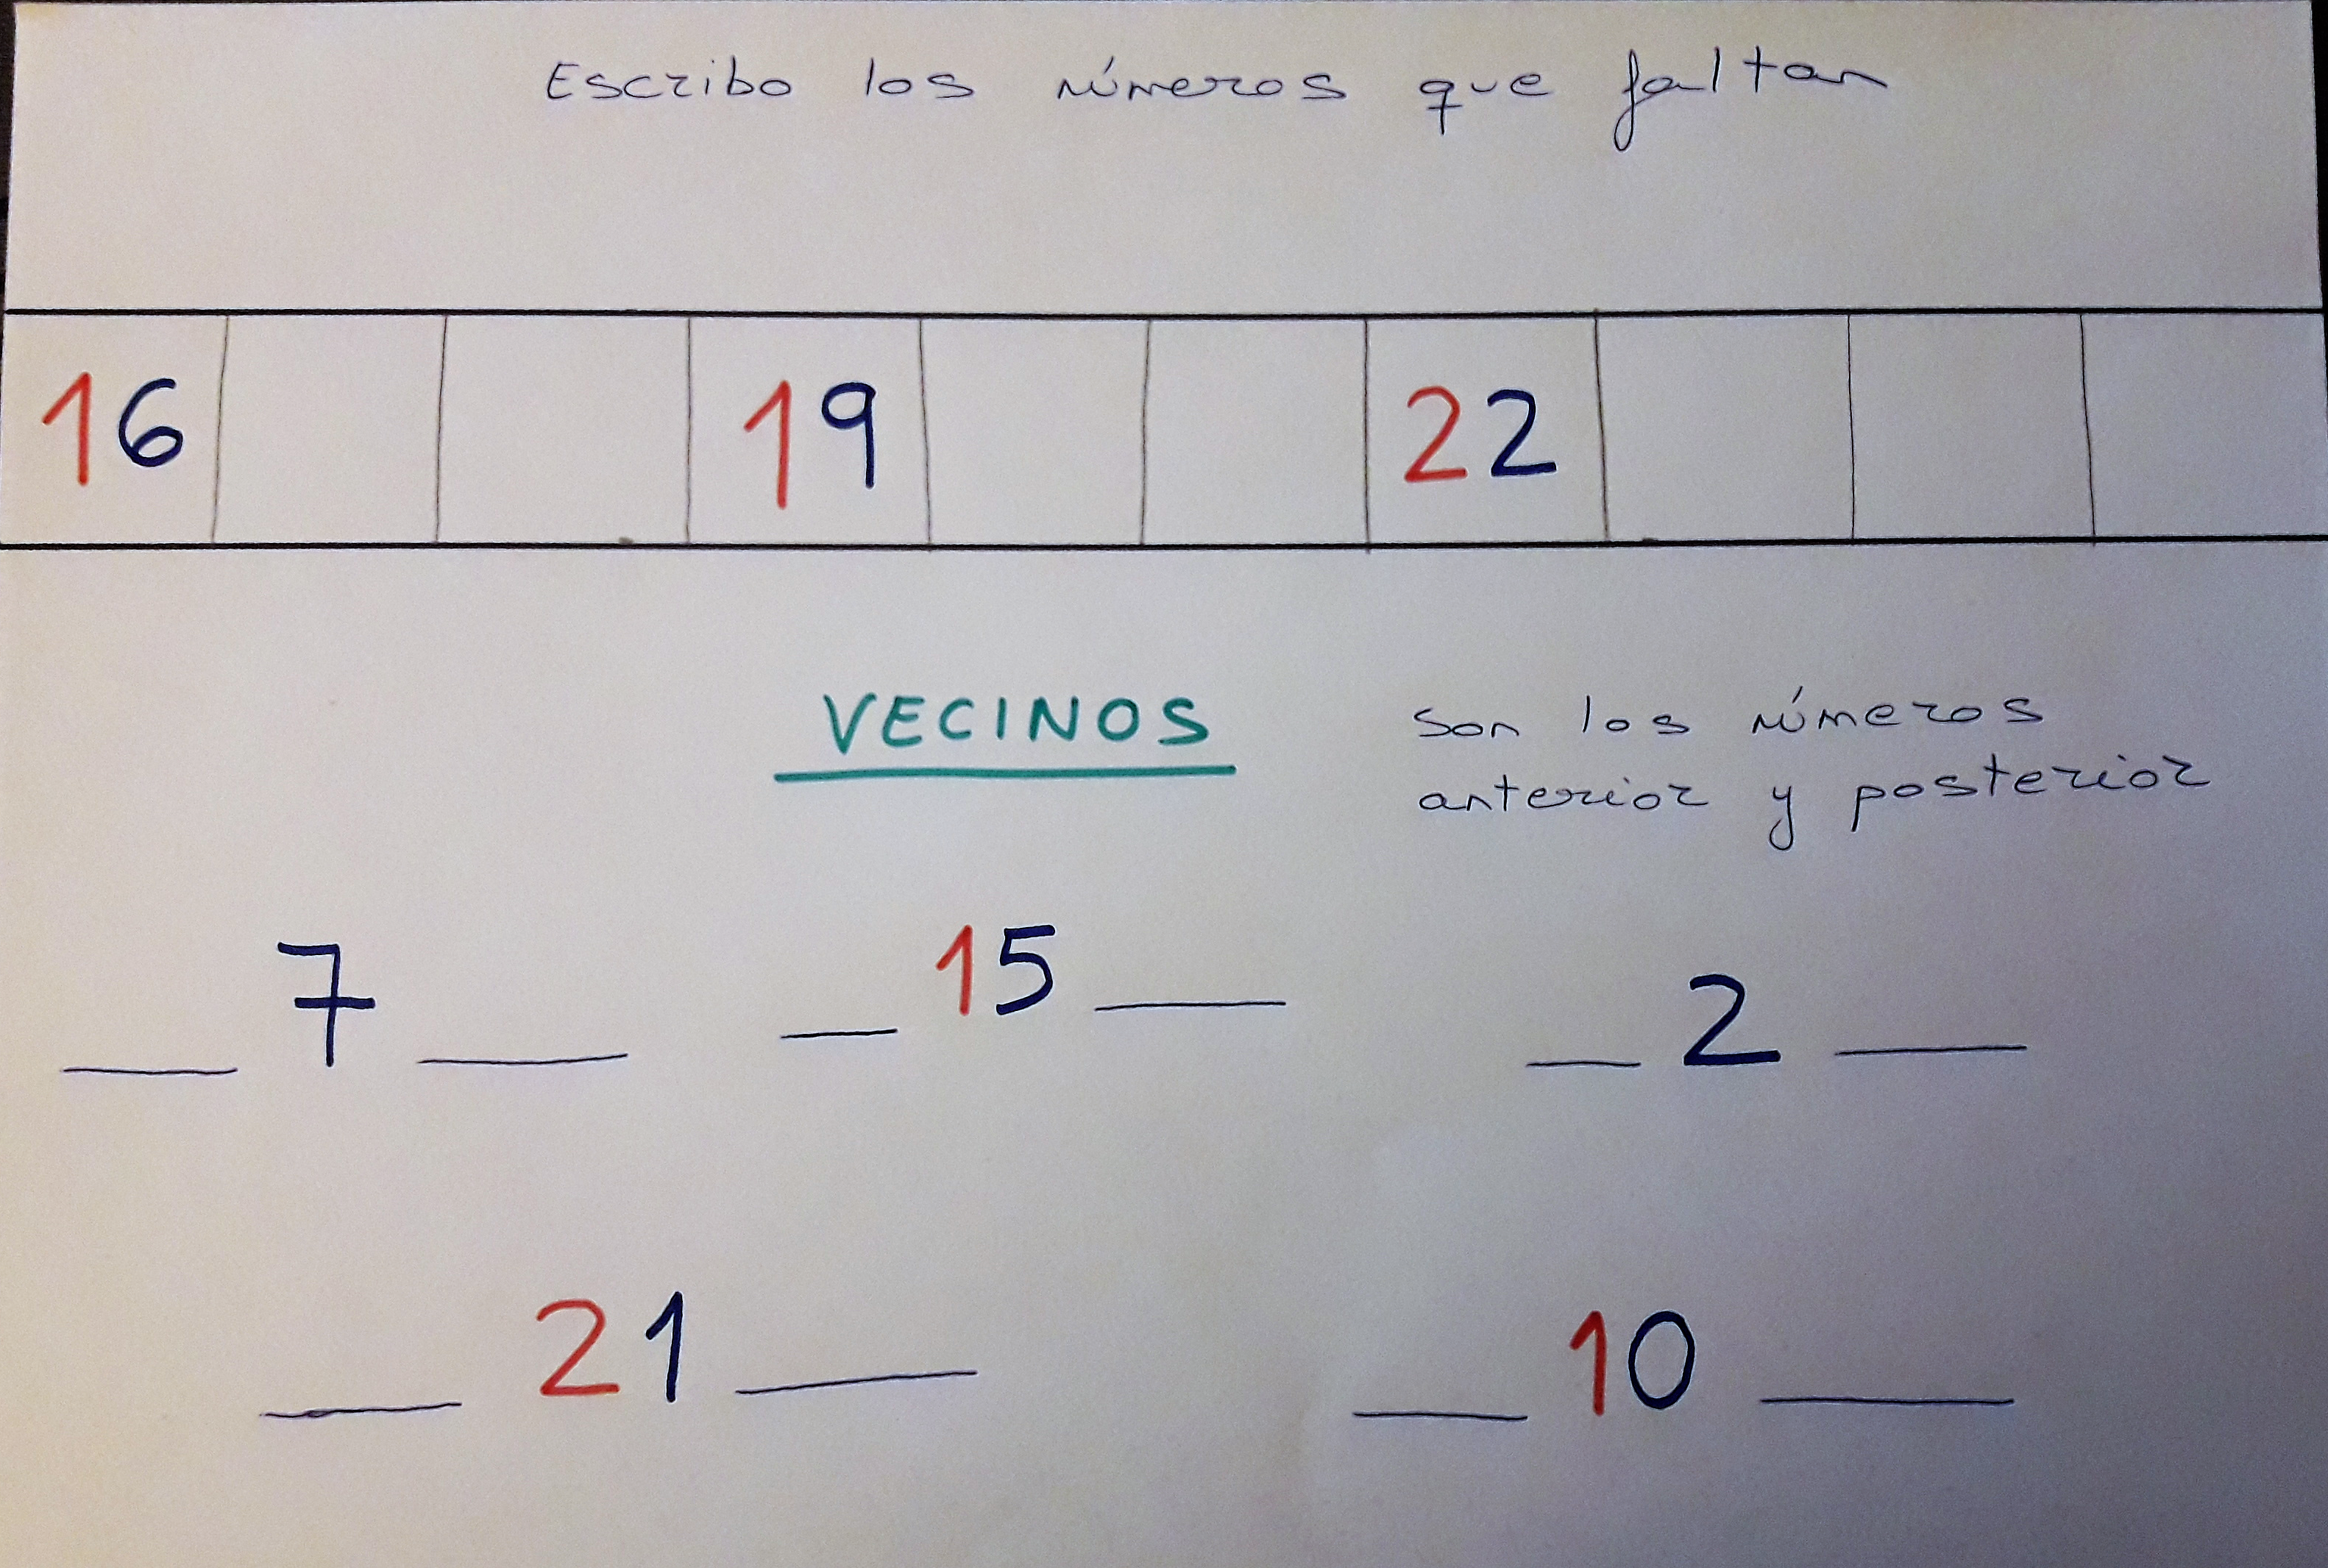 Escribo los números que faltan
16 19 22
VECINOS son los números
anterior y posterior
__ 7 __ __ 15 __ __ 2 __
__ 21 __ __ 10 __